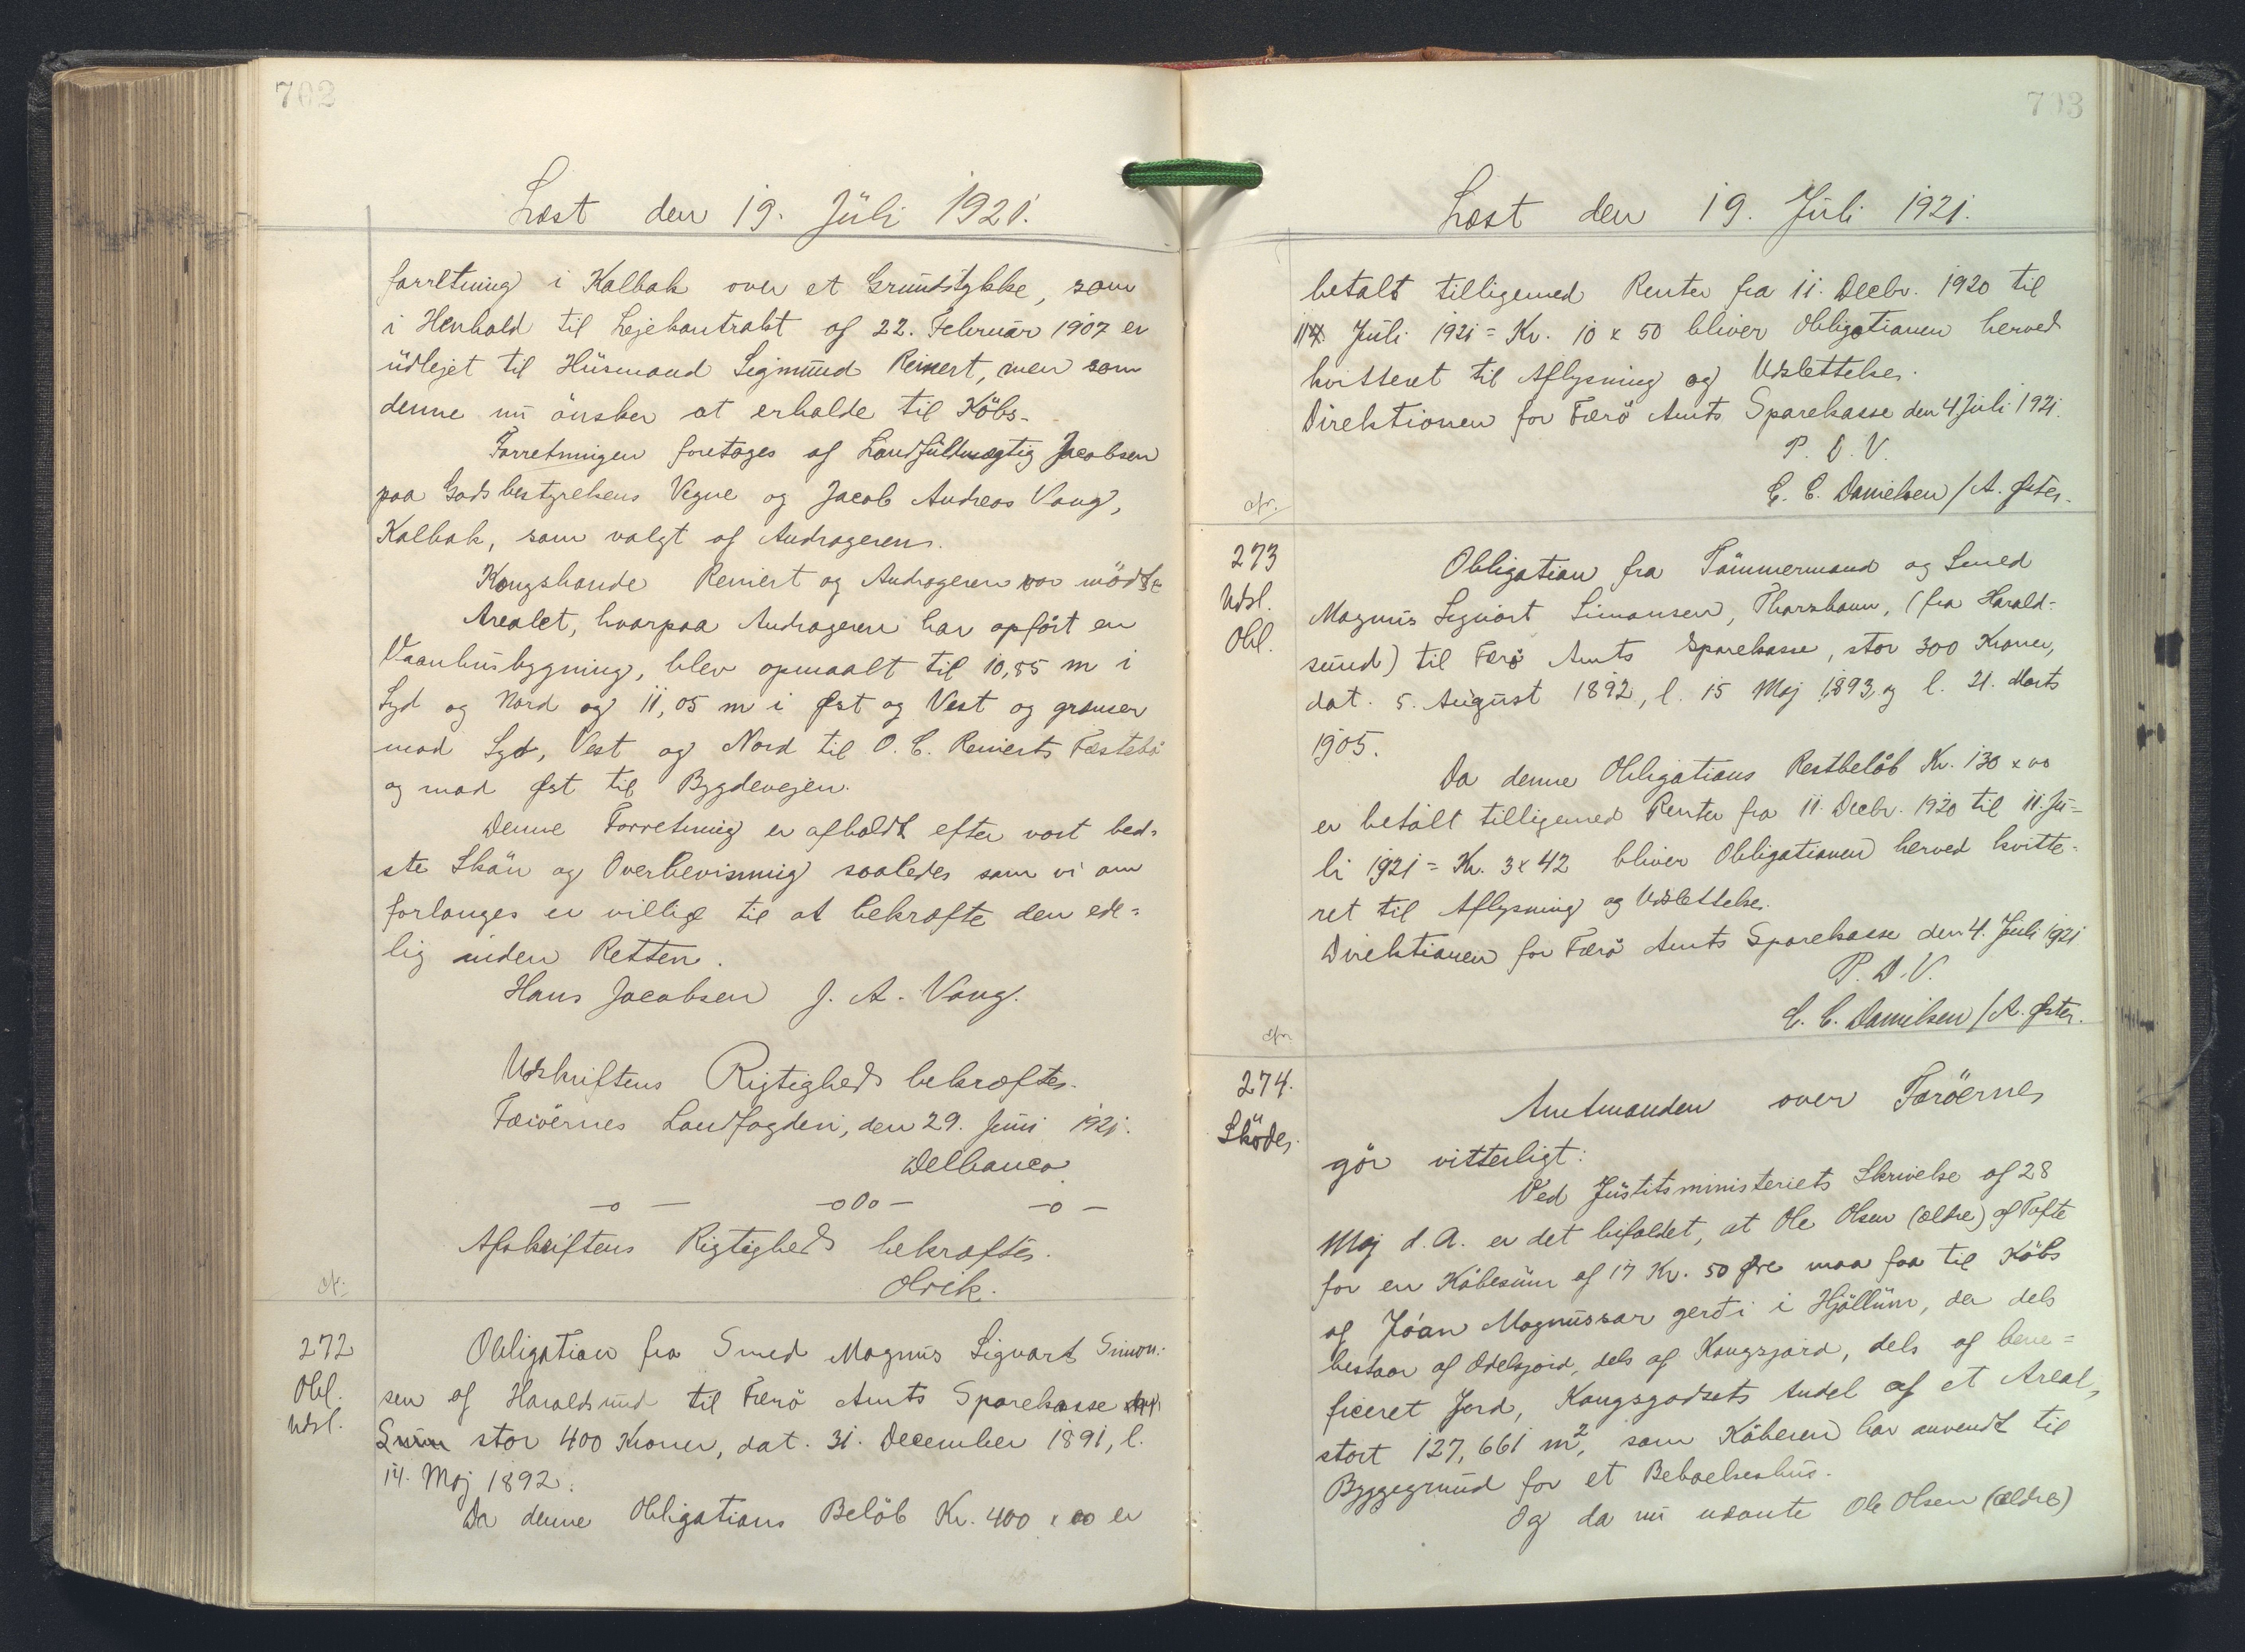 702
Læst den 19. Juli 1921.
forretning i Kalbak over et Grundstykke, som
i Henhold til Lejekontrakt af 22. Februar 1907 er
udlejet til Husmand Sigmund Reinert, men som
denne nu önsker at erholde til Köbs.
Forretningen foretages af Landfuldmægtig Jacobsen
paa Godsbestyrelsens Vegne og Jacob Andreas Vang,
Kalbak, som valgt af Andrageren.
Kongsbonde Reinert og Andrageren var mödte
Arealet, hvorpaa Andrageren har opfört en
Vaanhusbygning, blev opmaalt til 10,85 m i
Syd og Nord og 11,05 m i Øst og Vest og grænser
mod Syd, Vest og Nord til O. C. Reinerts Fæstebö
og mod Øst til Bygdevejen.
Denne Forretning er afholdt efter vort bed-
ste Skön og Overbevisning saaledes som vi om
forlanges er villige til at bekræfte den ede-
lig inden Retten.
Hans Jacobsen J. A. Vang.
Udskriftens Rigtighed bekræftes.
Færöernes Landfogderi, den 29. Juni 1921.
Delbanco
—o— —oOo— —o—
Afskriftens Rigtighed bekræftes.
Olrik.
cfr.
272
Obl.
Udsl.
Obligation fra Smed Magnus Sigvart Simon-
sen af Haraldsund til Færö Amts Sparekasse
stor 400 Kroner, dat. 31. December 1891, l.
14. Maj 1892.
Da denne Obligations Belöb Kr. 400 x 00 er
703
Læst den 19. Juli 1921.
betalt tilligemed Renter fra 11. Decbr. 1920 til
11. Juli 1921 = Kr. 10 x 50 bliver Obligationen herved
kvitteret til Aflysning og Udslettelse.
Direktionen for Færö Amts Sparekasse den 4 Juli 1921.
P. D. V.
C. C. Danielsen / A. Øster.
cfr.
273
Udsl.
Obl.
Obligation fra Tömmermand og Smed
Magnus Sigvart Simonsen, Thorshavn, (fra Harald-
sund) til Færö Amts Sparekasse, stor 300 Kroner,
dat. 5. August 1892, l. 15 Maj 1893, og l. 21. Marts
1905.
Da denne Obligations Restbelöb Kr. 130 x 00
er betalt tilligemed Renter fra 11. Decbr. 1920 til 11. Ju-
li 1921 = Kr. 3 x 42 bliver Obligationen herved kvitte-
ret til Aflysning og Udslettelse.
Direktionen for Færö Amts Sparekasse den 4. Juli 1921
P. D. V.
C. C. Danielsen / A. Øster.
cfr.
274.
Sköde.
Amtmanden over Færöerne,
gör vitterligt:
Ved Justitsministeriets Skrivelse af 28
Maj d. A. er det bifaldet, at Ole Olsen (ældre) af Tofte
for en Köbesum af 17 Kr. 50 Øre maa faa til Köbs
af Jóan Magnussar gerði i Hjöllum, der dels
bestaar af Odelsjord, dels af Kongsjord, dels af bene-
ficeret Jord, Kongsgodsets Andel af et Areal,
stort 127,661 m², som Köberen har anvendt til
Byggegrund for et Beboelseshus.
Og da nu nævnte Ole Olsen (ældre)